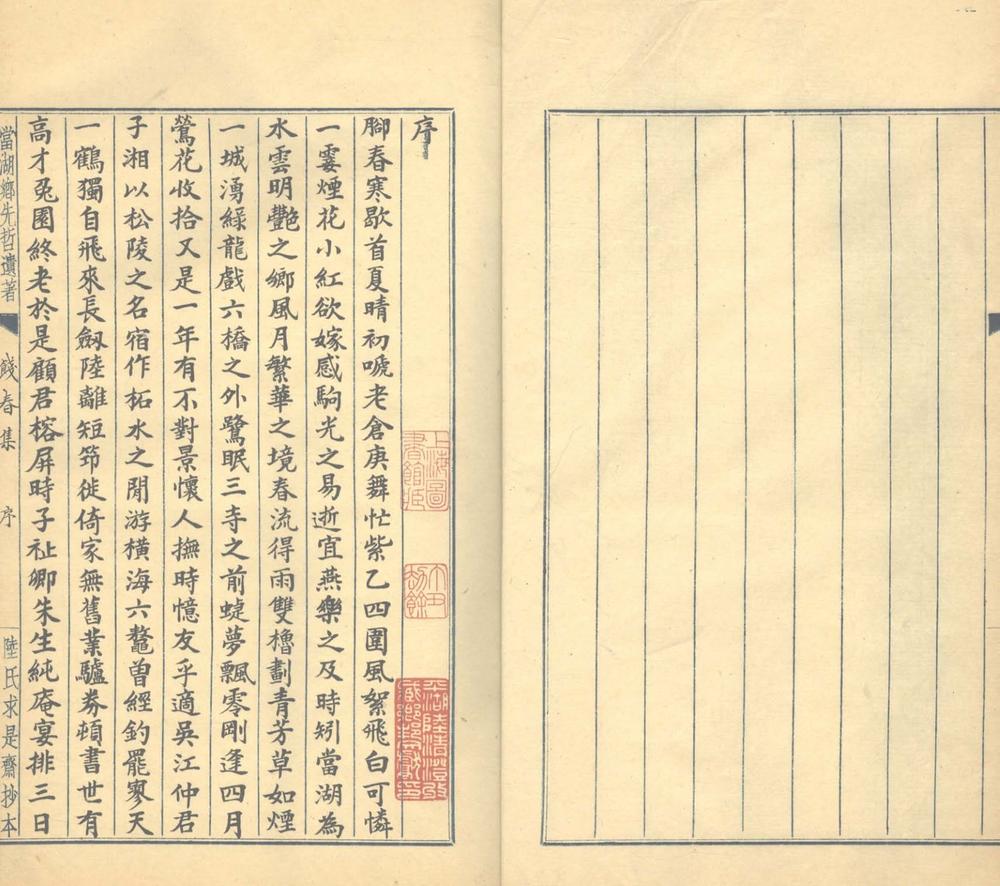 序
腳春寒歇首夏晴初唬老倉庚舞忙紫乙四圍風絮飛白可憐
一霎煙花小紅欲嫁感駒光之易逝宜燕樂之及時矧當湖為
水雲明豔之鄉風月繁華之境春流得雨雙櫓劃青芳草如煙
一城湧綠龍戲六橋之外鷺眠三寺之前蜨夢飄零剛逢四月
鶯花收拾又是一年有不對景懷人撫時憶友乎適吳江仲君
子湘以松陵之名宿作柘水之閒游橫海六鼇曾經釣罷寥天
一鶴獨自飛來長劔陸離短笻徙倚家無舊業驢券頓書世有
高才兔園終老於是顧君榕屏時子祉卿朱生純庵宴排三日
當湖鄉先哲遺著
餞春集
序
陸氏求是齋抄本
上海圖書館藏
平湖陸惟鍙